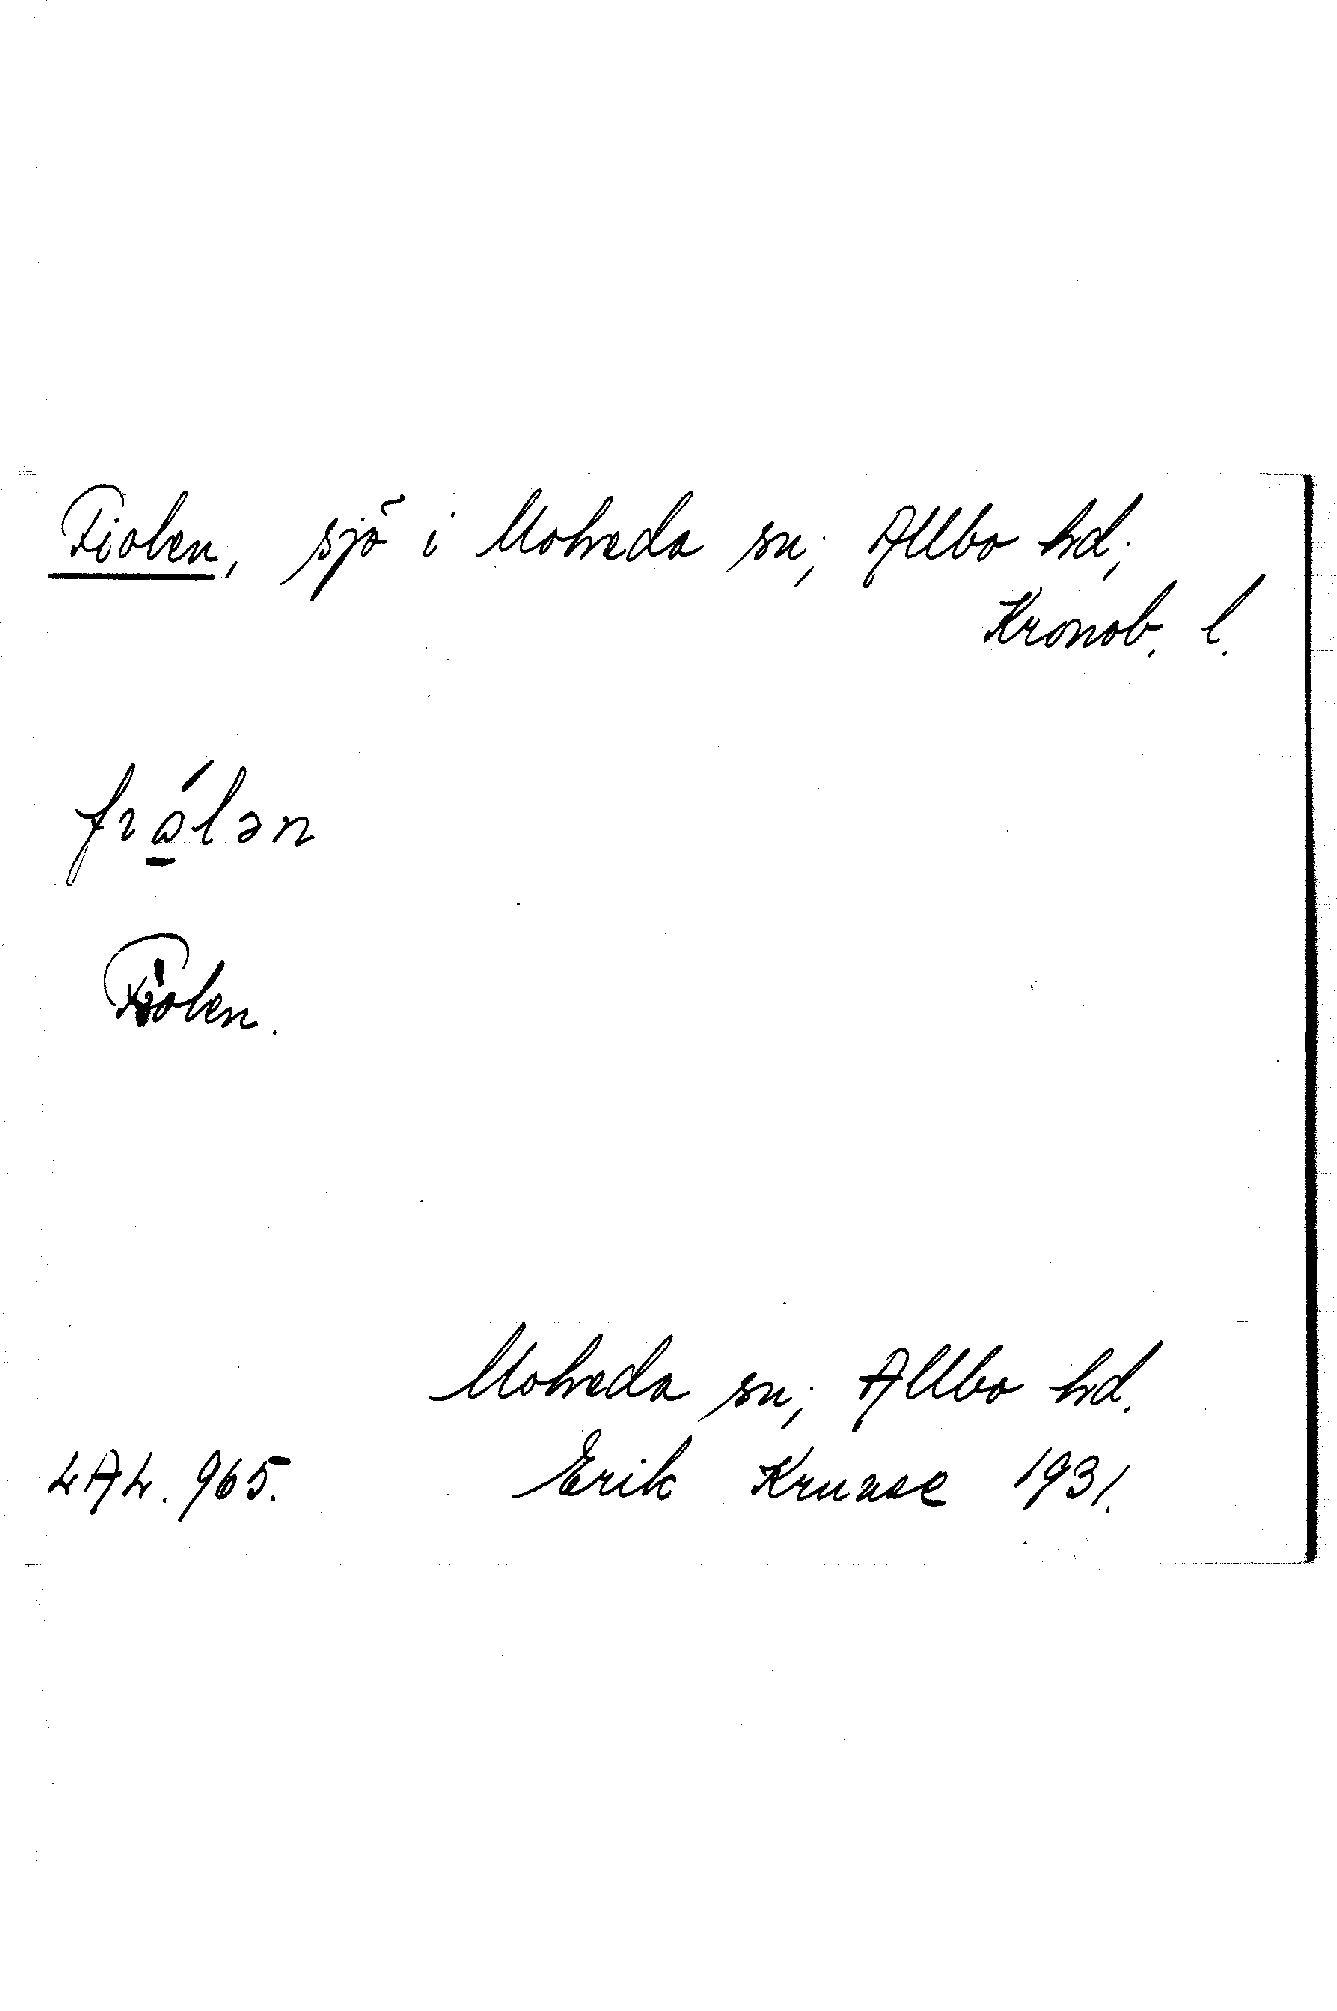 Fiolen, sjö i Moheda sn; Allbo hd;
Kronob. l.
Fiolen.
Moheda sn; Allbo hd.
LAL. 965. Erik Kruuse 1931.